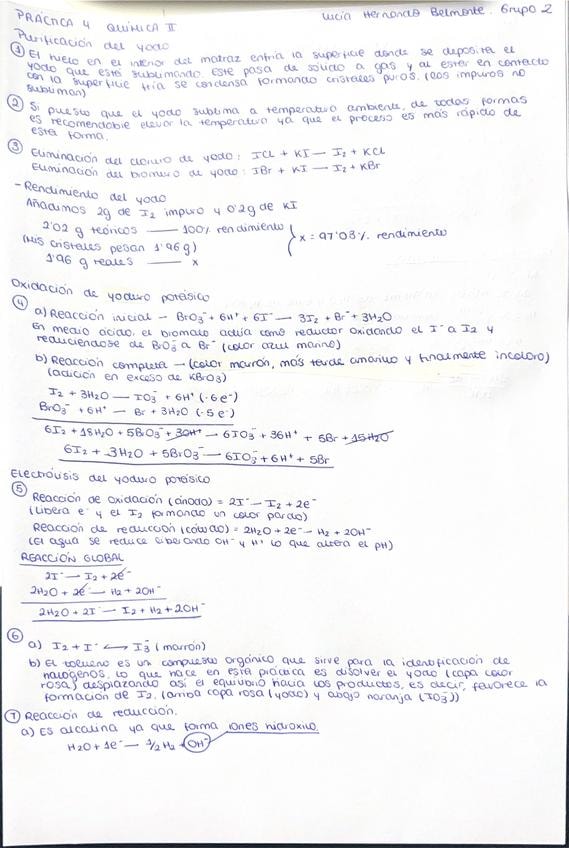 PRÁCTICA 4 QUÍMICA II
Lucía Hernando Belmonte. Grupo 2
Purificación del yodo
① El hielo en el interior del matraz enfría la superficie donde se deposita el
yodo que está sublimando. Este pasa de sólido a gas y al estar en contacto
con la superficie fría se condensa formando cristales puros. (los impuros no
subliman)
② Si puesto que el yodo sublima a temperatura ambiente, de todas formas
es recomendable elevar la temperatura ya que el proceso es más rápido de
esta forma.
③ Eliminación del cloruro de yodo: ICl + KI — I₂ + KCl
Eliminación del bromuro de yodo: IBr + KI — I₂ + KBr
- Rendimiento del yodo
Añadimos 2g de I₂ impuro y 0'2g de KI
2'02 g teóricos —— 100% rendimiento
(Mis cristales pesan 1'96 g)
1'96 g reales —— x
x = 97'03% rendimiento
Oxidación de yoduro potásico
④ a) Reacción inicial - BrO₃⁻ + 6H⁺ + 6I⁻ — 3I₂ + Br⁻ + 3H₂O
En medio ácido, el bromato actúa como reductor oxidando el I⁻ a I₂ y
reduciéndose de BrO₃⁻ a Br⁻ (color azul marino)
b) Reacción completa → (color marrón, más tarde amarillo y finalmente incoloro)
(adición en exceso de KBrO₃)
I₂ + 3H₂O — IO₃⁻ + 6H⁺ (·6e⁻)
BrO₃⁻ + 6H⁺ — Br + 3H₂O (·5e⁻)
6I₂ + 18H₂O + 5BrO₃⁻ + 30H⁺ — 6IO₃⁻ + 36H⁺ + 5Br + 15H₂O
6I₂ + 3H₂O + 5BrO₃⁻ — 6IO₃⁻ + 6H⁺ + 5Br
Electrólisis del yoduro potásico
⑤ Reacción de oxidación (ánodo) = 2I⁻ — I₂ + 2e⁻
(Libera e⁻ y el I₂ formando un color pardo)
Reacción de reducción (cátodo) = 2H₂O + 2e⁻ — H₂ + 2OH⁻
(El agua se reduce liberando OH⁻ y H⁺ lo que altera el pH)
REACCIÓN GLOBAL
2I⁻ — I₂ + 2e⁻
2H₂O + 2e⁻ — H₂ + 2OH⁻
2H₂O + 2I⁻ — I₂ + H₂ + 2OH⁻
⑥
a) I₂ + I⁻ ⟷ I₃⁻ (marrón)
b) El tolueno es un compuesto orgánico que sirve para la identificación de
halógenos, lo que hace en esta práctica es disolver el yodo (capa color
rosa) desplazando así el equilibrio hacia los productos, es decir, favorece la
formación de I₂. (arriba capa rosa (yodo) y abajo naranja (IO₃⁻))
⑦ Reacción de reducción.
a) Es alcalina ya que forma iones hidroxilo.
H₂O + 1e⁻ — 1/2 H₂ + OH⁻